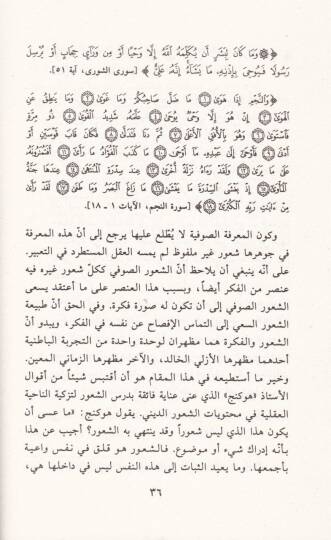 ﴿وَمَا كَانَ لِبَشَرٍ أَن يُكَلِّمَهُ اللَّهُ إِلَّا وَحْيًا أَوْ مِن وَرَآيِٕ حِجَابٍ أَوْ يُرْسِلَ
رَسُولًا فَيُوحِيَ بِإِذْنِهِ مَا يَشَآءُ إِنَّهُ عَلِيٌّ﴾ [سورى الشورى، آية ٥١].
﴿وَالنَّجْمِ إِذَا هَوَىٰ ١ مَا ضَلَّ صَاحِبُكُمْ وَمَا غَوَىٰ ٢ وَمَا يَنطِقُ عَنِ
الْهَوَىٰ ٣ إِنْ هُوَ إِلَّا وَحْيٌ يُوحَىٰ ٤ عَلَّمَهُ شَدِيدُ الْقُوَىٰ ٥ ذُو مِرَّةٍ
فَاسْتَوَىٰ ٦ وَهُوَ بِالْأُفُقِ الْأَعْلَىٰ ٧ ثُمَّ دَنَا فَتَدَلَّىٰ ٨ فَكَانَ قَابَ قَوْسَيْنِ أَوْ
أَدْنَىٰ ٩ فَأَوْحَىٰ إِلَىٰ عَبْدِهِ مَا أَوْحَىٰ ١٠ مَا كَذَبَ الْفُؤَادُ مَا رَأَىٰ ١١ أَفَتُمَارُونَهُ
عَلَىٰ مَا يَرَىٰ ١٢ وَلَقَدْ رَءَاهُ نَزْلَةً أُخْرَىٰ ١٣ عِندَ سِدْرَةِ الْمُنتَهَىٰ ١٤ عِندَهَا جَنَّةُ
الْمَأْوَىٰ ١٥ إِذْ يَغْشَى السِّدْرَةَ مَا يَغْشَىٰ ١٦ مَا زَاغَ الْبَصَرُ وَمَا طَغَىٰ ١٧ لَقَدْ رَأَىٰ
مِنْ ءَايَٰتِ رَبِّهِ الْكُبْرَىٰ ١٨﴾ [سورة النجم، الآيات ١ - ١٨].
وكون المعرفة الصوفية لا يُطّلع عليها يرجع إلى أنّ هذه المعرفة
في جوهرها شعور غير ملفوظ لم يمسه العقل المستطرد في التعبير.
على أنّه ينبغي أن يلاحظ أنّ الشعور الصوفي ككلّ شعور غيره فيه
عنصر من الفكر أيضاً، وبسبب هذا العنصر على ما أعتقد يسعى
الشعور الصوفي إلى أن تكون له صورة فكرة. وفي الحق أنّ طبيعة
الشعور السعي إلى التماس الإفصاح عن نفسه في الفكر، ويبدو أنّ
الشعور والفكرة هما مظهران لوحدة واحدة من التجربة الباطنية
أحدهما مظهرها الأزلي الخالد، والآخر مظهرها الزماني المعين.
وخير ما أستطيعه في هذا المقام هو أن أقتبس شيئاً من أقوال
الأستاذ «هوكنج» الذي عنى عناية فائقة بدرس الشعور لتزكية الناحية
العقلية في محتويات الشعور الديني. يقول هوكنج: «ما عسى أن
يكون هذا الذي ليس شعوراً وقد ينتهي به الشعور؟ أجيب عن هذا
بأنّه إدراك شيء أو موضوع. فالشعور هو قلق في نفس واعية
بأجمعها. وما يعيد الثبات إلى هذه النفس ليس في داخلها هي،
٣٦